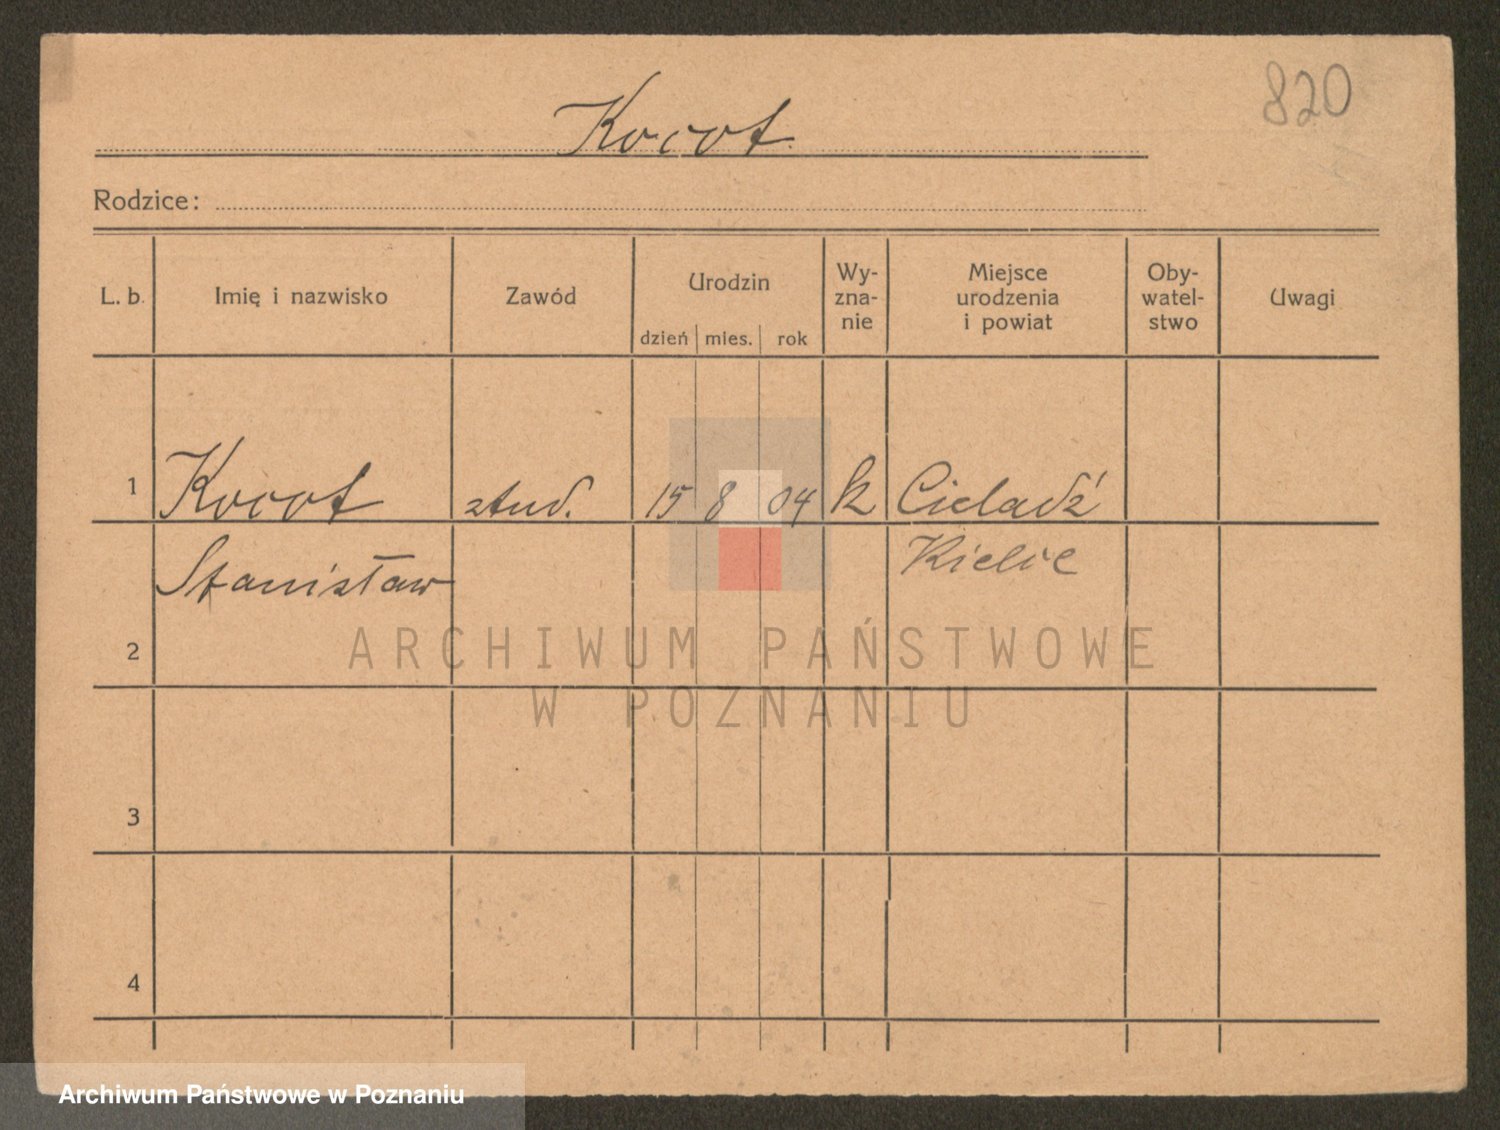 820
Kocot
Rodzice:
L. b. Imię i nazwisko Zawód Urodzin dzień mies. rok Wy-zna-nie Miejsce urodzenia i powiat Oby-watel-stwo Uwagi
1 Kocot stud. 15 8 04 k Cieladź
Stanisław Kielce
2
3
4
ARCHIWUM PAŃSTWOWE
W POZNANIU
Archiwum Państwowe w Poznaniu